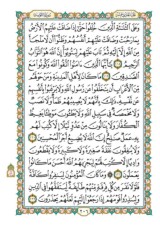 وَعَلَى الثَّلَاثَةِ الَّذِينَ خُلِّفُوا حَتَّىٰ إِذَا ضَاقَتْ عَلَيْهِمُ الْأَرْضُ
بِمَا رَحُبَتْ وَضَاقَتْ عَلَيْهِمْ أَنفُسُهُمْ وَظَنُّوا أَن لَّا مَلْجَأَ
مِنَ اللَّهِ إِلَّا إِلَيْهِ ثُمَّ تَابَ عَلَيْهِمْ لِيَتُوبُوا إِنَّ اللَّهَ هُوَ التَّوَّابُ
الرَّحِيمُ يَا أَيُّهَا الَّذِينَ آمَنُوا اتَّقُوا اللَّهَ وَكُونُوا مَعَ
الصَّادِقِينَ مَا كَانَ لِأَهْلِ الْمَدِينَةِ وَمَنْ حَوْلَهُم
مِّنَ الْأَعْرَابِ أَن يَتَخَلَّفُوا عَن رَّسُولِ اللَّهِ وَلَا يَرْغَبُوا بِأَنفُسِهِمْ
عَن نَّفْسِهِ ذَٰلِكَ بِأَنَّهُمْ لَا يُصِيبُهُمْ ظَمَأٌ وَلَا نَصَبٌ
وَلَا مَخْمَصَةٌ فِي سَبِيلِ اللَّهِ وَلَا يَطَئُونَ مَوْطِئًا يَغِيظُ
الْكُفَّارَ وَلَا يَنَالُونَ مِنْ عَدُوٍّ نَّيْلًا إِلَّا كُتِبَ لَهُم
بِهِ عَمَلٌ صَالِحٌ إِنَّ اللَّهَ لَا يُضِيعُ أَجْرَ
الْمُحْسِنِينَ وَلَا يُنفِقُونَ نَفَقَةً صَغِيرَةً وَلَا كَبِيرَةً وَلَا يَقْطَعُونَ
وَادِيًا إِلَّا كُتِبَ لَهُمْ لِيَجْزِيَهُمُ اللَّهُ أَحْسَنَ مَا كَانُوا
يَعْمَلُونَ وَمَا كَانَ الْمُؤْمِنُونَ لِيَنفِرُوا كَافَّةً
فَلَوْلَا نَفَرَ مِن كُلِّ فِرْقَةٍ مِّنْهُمْ طَائِفَةٌ لِّيَتَفَقَّهُوا فِي الدِّينِ
وَلِيُنذِرُوا قَوْمَهُمْ إِذَا رَجَعُوا إِلَيْهِمْ لَعَلَّهُمْ يَحْذَرُونَ
٢٠٦